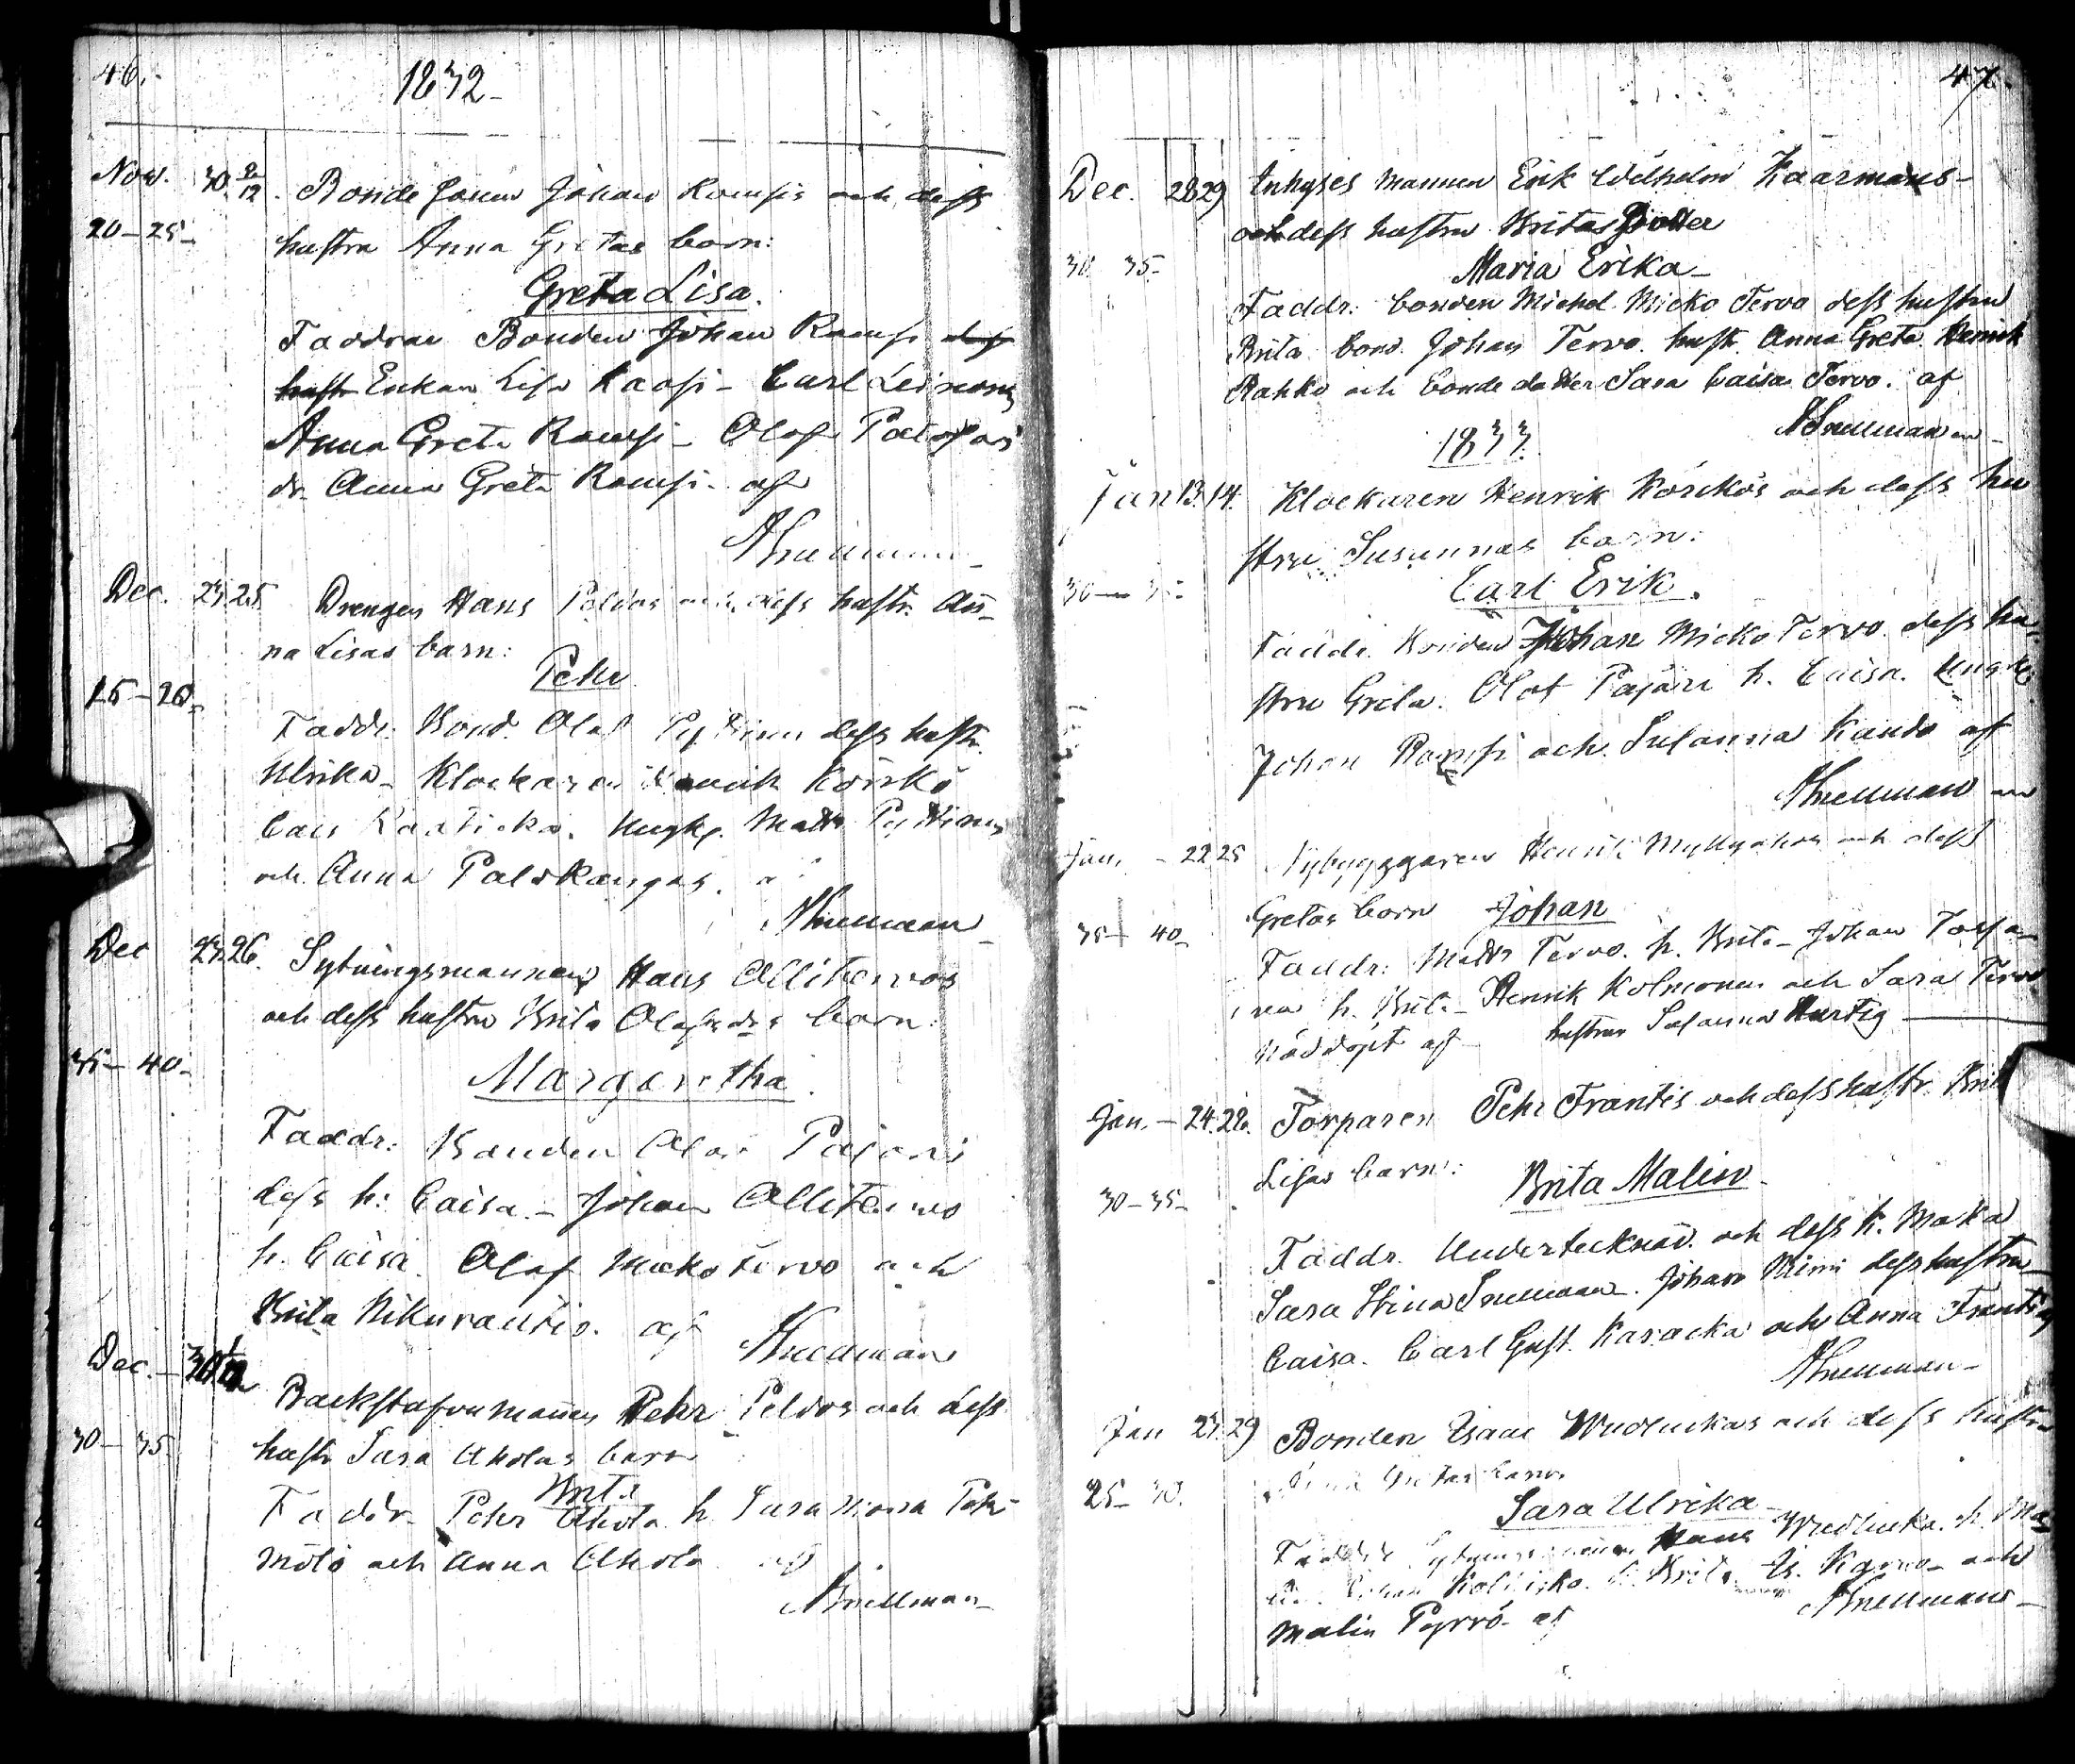 46.
1832
Nov. 30. 2/12. Bonde sonen Johan Romsis och dess
20-25- hustru Anna Gretas barn:
Greta Lisa.
Faddrar Bonden Johan Romsi dess
hustr Enkan Lisa Kaasi - Carl Leinonen
Anna Greta Romsi - Olof
dr. Anna Greta Romsi. af
Snellman
Dec. 23. 25 Drengen Hans Peldos och dess hustr. An-
na Lisas barn:
Pehr
15-20-
Faddr. Bond. Olof Pyttinen dess hustr.
Ulrika - Klockaren Henrik Körkö
Cais. Ungk. Matts Pyttinen
och Anna Palokangas.
Snellman
Dec 23. 26. Sytningsmannen Hans Allitervos
och dess hustru Brita Olofsdrs barn:
35-40-
Margaretha.
Faddr: Bonden Olof Pajari
dess h: Caisa - Johan Allitervo
h. Caisa. Olof Micko Tervo och
Brita af
Snellman
Dec. - 30 Backstufvumannen Pehr Peldos och dess
30-35 hustr Sara Aholas barn
Brita
Faddr. Pehr Ahola h. Sara
och Anna Ahola af
Snellman
47.
Dec. 28 29 Inhyses mannen Erik Wilhelm Kaarmans-
och dess hustru Britas Dotter
30 35- Maria Erika-
Faddr: bonden Michel Micko Tervo dess hustru
Brita bond. Johan Tervo. hustr. Anna Greta. Henrik
Rahko och bonde dotter Sara Caisa Tervo. af
Snellman
1833.
Jan 13. 14. Klockaren Henrik Körkös och dess hu
stru Susannas barn:
30 - 35- Carl Erik.
Faddr. Bonden Johan Micko Tervo dess hu-
stru Greta. Olof Pajari h. Caisa. Ungk.
Johan Romsi och Susanna Kando af
Snellman
Jan. - 22 25 Nybyggaren Henrik och dess
Gretas barn Johan
35 - 40-
Faddr: Matts Tervo. h. Brita - Johan
h. Brita - Henrik Kolmonen och Sara Tervo
Nöddöpt af hustrun Susanna Hurtig
Jan. - 24. 26. Torparen Pehr Frantis och dess hustr. Brita
Lisas barn: Brita Malin
30-35-
Faddr. Undertecknad. och dess k. Maka
Sara Stina Snellman. Johan Niemi dess hustru
Caisa. Carl Gust. Karacka och Anna Frantis af
Snellman-
Jan 23. 29 Bonden Isaac Wuoluckas och dess hustru
Gretas barn
25-30. Sara Ulrika-
Faddr. Sytningsmann Hans Wuolucka. h. Ma
Johan h. Brita. och
Malin Pyrrö- af Snellman-